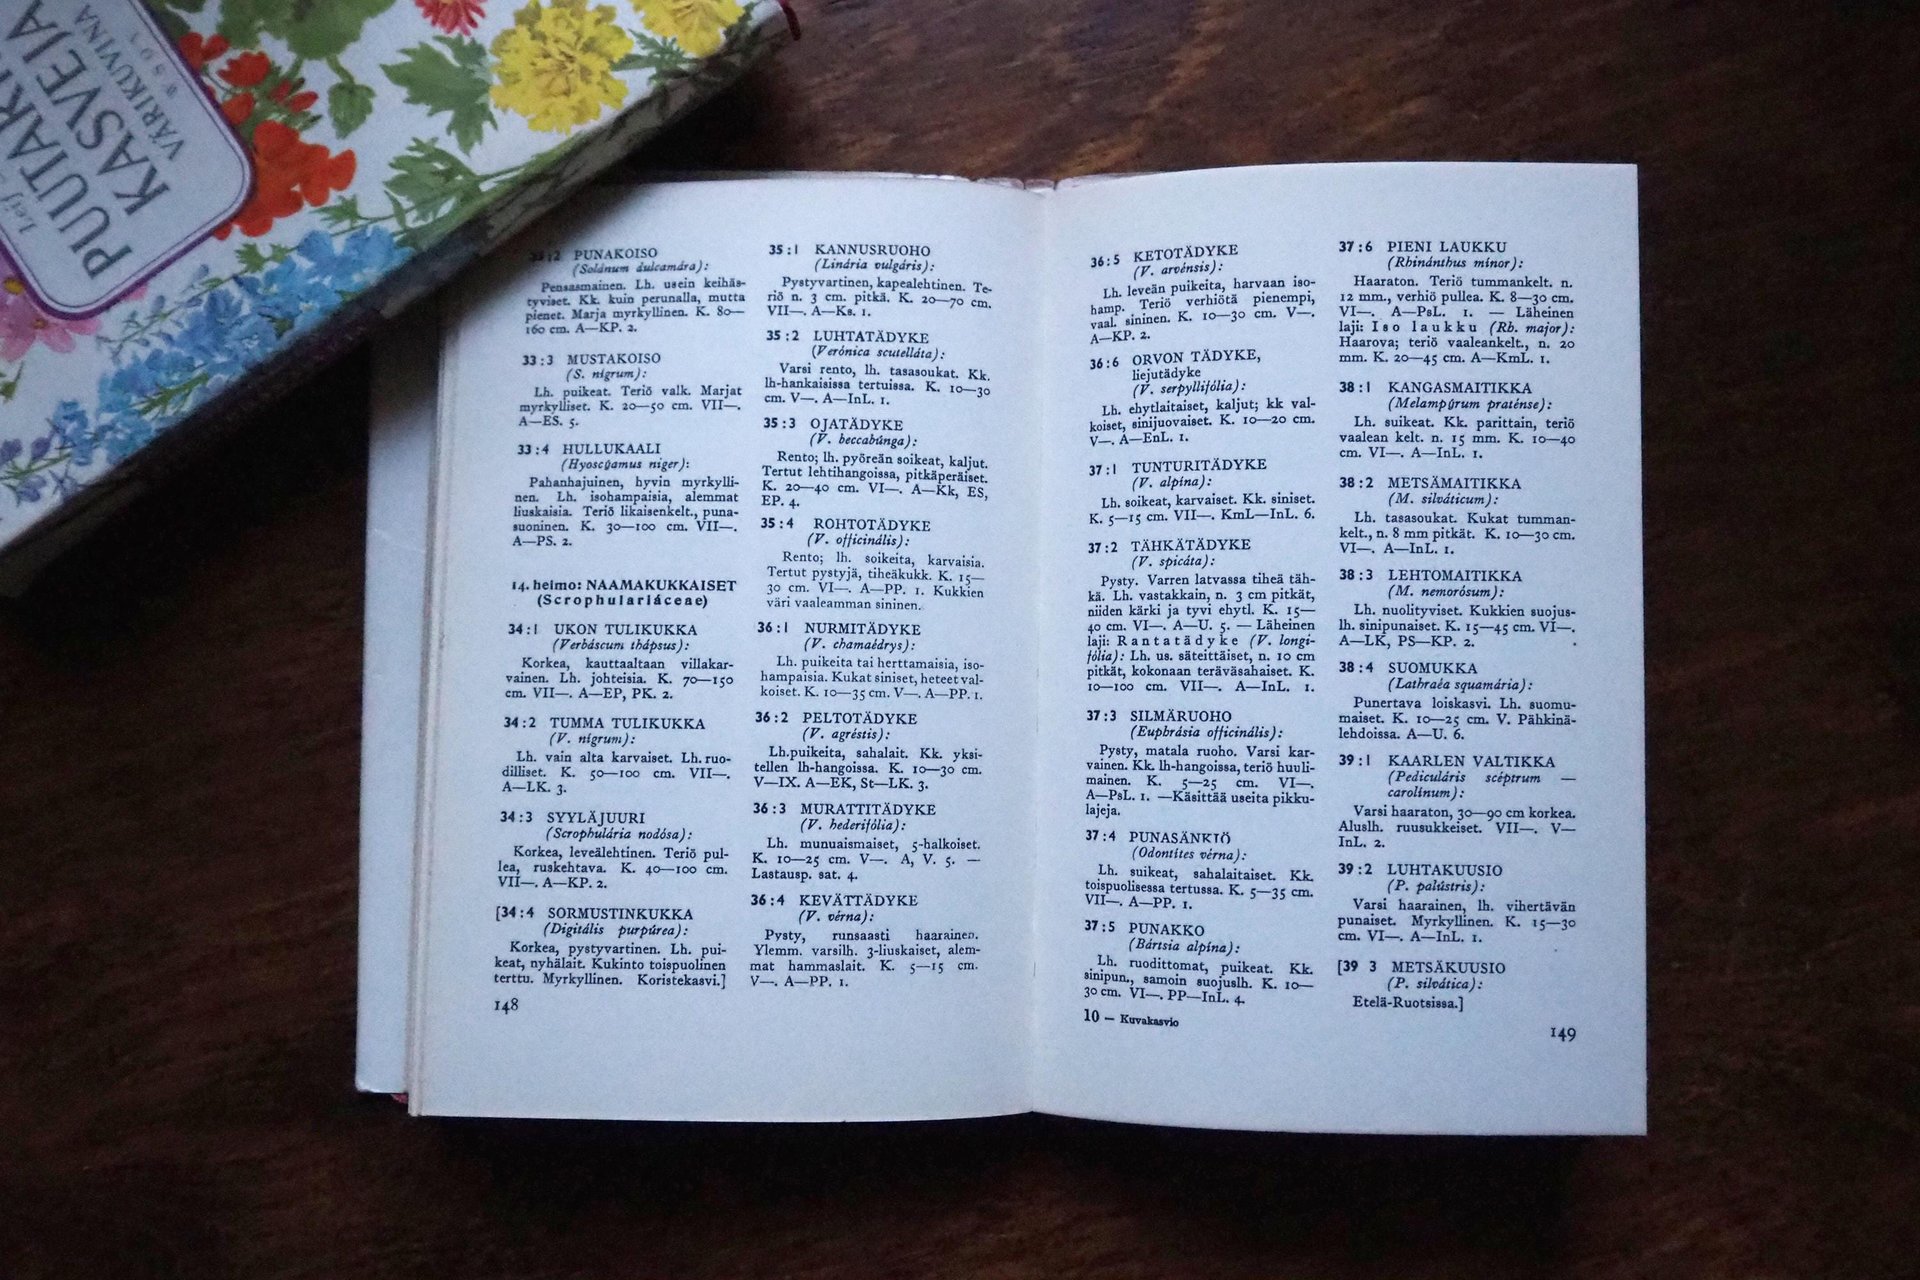 Leif
PUUTAR
KASVEJA
VÄRIKUVINA
33:2 PUNAKOISO
(Solánum dulcamára):
Pensasmainen. Lh. usein keihäs-
tyviset. Kk. kuin perunalla, mutta
pienet. Marja myrkyllinen. K. 80—
160 cm. A—KP. 2.
33:3 MUSTAKOISO
(S. nígrum):
Lh. puikeat. Teriö valk. Marjat
myrkylliset. K. 20—50 cm. VII—.
A—ES. 5.
33:4 HULLUKAALI
(Hyoscýamus niger):
Pahanhajuinen, hyvin myrkylli-
nen. Lh. isohampaisia, alemmat
liuskaisia. Teriö likaisenkelt., puna-
suoninen. K. 30—100 cm. VII—.
A—PS. 2.
14. heimo: NAAMAKUKKAISET
(Scrophulariáceae)
34:1 UKON TULIKUKKA
(Verbáscum thápsus):
Korkea, kauttaaltaan villakar-
vainen. Lh. johteisia. K. 70—150
cm. VII—. A—EP, PK. 2.
34:2 TUMMA TULIKUKKA
(V. nígrum):
Lh. vain alta karvaiset. Lh. ruo-
dilliset. K. 50—100 cm. VII—.
A—LK. 3.
34:3 SYYLÄJUURI
(Scrophulária nodósa):
Korkea, leveälehtinen. Teriö pul-
lea, ruskehtava. K. 40—100 cm.
VII—. A—KP. 2.
[34:4 SORMUSTINKUKKA
(Digitális purpúrea):
Korkea, pystyvartinen. Lh. pui-
keat, nyhälait. Kukinto toispuolinen
terttu. Myrkyllinen. Koristekasvi.]
148
35:1 KANNUSRUOHO
(Linária vulgáris):
Pystyvartinen, kapealehtinen. Te-
riö n. 3 cm. pitkä. K. 20—70 cm.
VII—. A—Ks. 1.
35:2 LUHTATÄDYKE
(Verónica scutelláta):
Varsi rento, lh. tasasoukat. Kk.
lh-hankaisissa tertuissa. K. 10—30
cm. V—. A—InL. 1.
35:3 OJATÄDYKE
(V. beccabúnga):
Rento; lh. pyöreän soikeat, kaljut.
Tertut lehtihangoissa, pitkäperäiset.
K. 20—40 cm. VI—. A—Kk, ES,
EP. 4.
35:4 ROHTOTÄDYKE
(V. officinális):
Rento; lh. soikeita, karvaisia.
Tertut pystyjä, tiheäkukk. K. 15—
30 cm. VI—. A—PP. 1. Kukkien
väri vaaleamman sininen.
36:1 NURMITÄDYKE
(V. chamaédrys):
Lh. puikeita tai herttamaisia, iso-
hampaisia. Kukat siniset, heteet val-
koiset. K. 10—35 cm. V—. A—PP. 1.
36:2 PELTOTÄDYKE
(V. agréstis):
Lh. puikeita, sahalait. Kk. yksi-
tellen lh-hangoissa. K. 10—30 cm.
V—IX. A—EK, St—LK. 3.
36:3 MURATTITÄDYKE
(V. hederifólia):
Lh. munuaismaiset, 5-halkoiset.
K. 10—25 cm. V—. A, V. 5. —
Lastausp. sat. 4.
36:4 KEVÄTTÄDYKE
(V. vérna):
Pysty, runsaasti haarainen.
Ylemm. varsilh. 3-liuskaiset, alem-
mat hammaslait. K. 5—15 cm.
V—. A—PP. 1.
36:5 KETOTÄDYKE
(V. arvénsis):
Lh. leveän puikeita, harvaan iso-
hamp. Teriö verhiötä pienempi,
vaal. sininen. K. 10—30 cm. V—.
A—KP. 2.
36:6 ORVON TÄDYKE,
liejutädyke
(V. serpyllifólia):
Lh. ehytlaitaiset, kaljut; kk val-
koiset, sinijuovaiset. K. 10—20 cm.
V—. A—EnL. 1.
37:1 TUNTURITÄDYKE
(V. alpína):
Lh. soikeat, karvaiset. Kk. siniset.
K. 5—15 cm. VII—. KmL—InL. 6.
37:2 TÄHKÄTÄDYKE
(V. spicáta):
Pysty. Varren latvassa tiheä täh-
kä. Lh. vastakkain, n. 3 cm pitkät,
niiden kärki ja tyvi ehytl. K. 15—
40 cm. VI—. A—U. 5. — Läheinen
laji: Rantatädyke (V. longi-
fólia): Lh. us. säteittäiset, n. 10 cm
pitkät, kokonaan teräväsahaiset. K.
10—100 cm. VII—. A—InL. 1.
37:3 SILMÄRUOHO
(Euphrásia officinális):
Pysty, matala ruoho. Varsi kar-
vainen. Kk. lh-hangoissa, teriö huuli-
mainen. K. 5—25 cm. VI—.
A—PsL. 1. —Käsittää useita pikku-
lajeja.
37:4 PUNASÄNKIÖ
(Odontítes vérna):
Lh. suikeat, sahalaitaiset. Kk.
toispuolisessa tertussa. K. 5—35 cm.
VII—. A—PP. 1.
37:5 PUNAKKO
(Bártsia alpína):
Lh. ruodittomat, puikeat. Kk.
sinipun., samoin suojuslh. K. 10—
30 cm. VI—. PP—InL. 4.
10 — Kuvakasvio
37:6 PIENI LAUKKU
(Rhinánthus mínor):
Haaraton. Teriö tummankelt. n.
12 mm., verhiö pullea. K. 8—30 cm.
VI—. A—PsL. 1. — Läheinen
laji: Iso laukku (Rh. major):
Haarova; teriö vaaleankelt., n. 20
mm. K. 20—45 cm. A—KmL. 1.
38:1 KANGASMAITIKKA
(Melampýrum praténse):
Lh. suikeat. Kk. parittain, teriö
vaalean kelt. n. 15 mm. K. 10—40
cm. VI—. A—InL. 1.
38:2 METSÄMAITIKKA
(M. silváticum):
Lh. tasasoukat. Kukat tumman-
kelt., n. 8 mm pitkät. K. 10—30 cm.
VI—. A—InL. 1.
38:3 LEHTOMAITIKKA
(M. nemorósum):
Lh. nuolityviset. Kukkien suojus-
lh. sinipunaiset. K. 15—45 cm. VI—.
A—LK, PS—KP. 2.
38:4 SUOMUKKA
(Lathraéa squamária):
Punertava loiskasvi. Lh. suomu-
maiset. K. 10—25 cm. V. Pähkinä-
lehdoissa. A—U. 6.
39:1 KAARLEN VALTIKKA
(Pediculáris scéptrum —
carolínum):
Varsi haaraton, 30—90 cm korkea.
Aluslh. ruusukkeiset. VII—. V—
InL. 2.
39:2 LUHTAKUUSIO
(P. palústris):
Varsi haarainen, lh. vihertävän
punaiset. Myrkyllinen. K. 15—30
cm. VI—. A—InL. 1.
[39 3 METSÄKUUSIO
(P. silvática):
Etelä-Ruotsissa.]
149